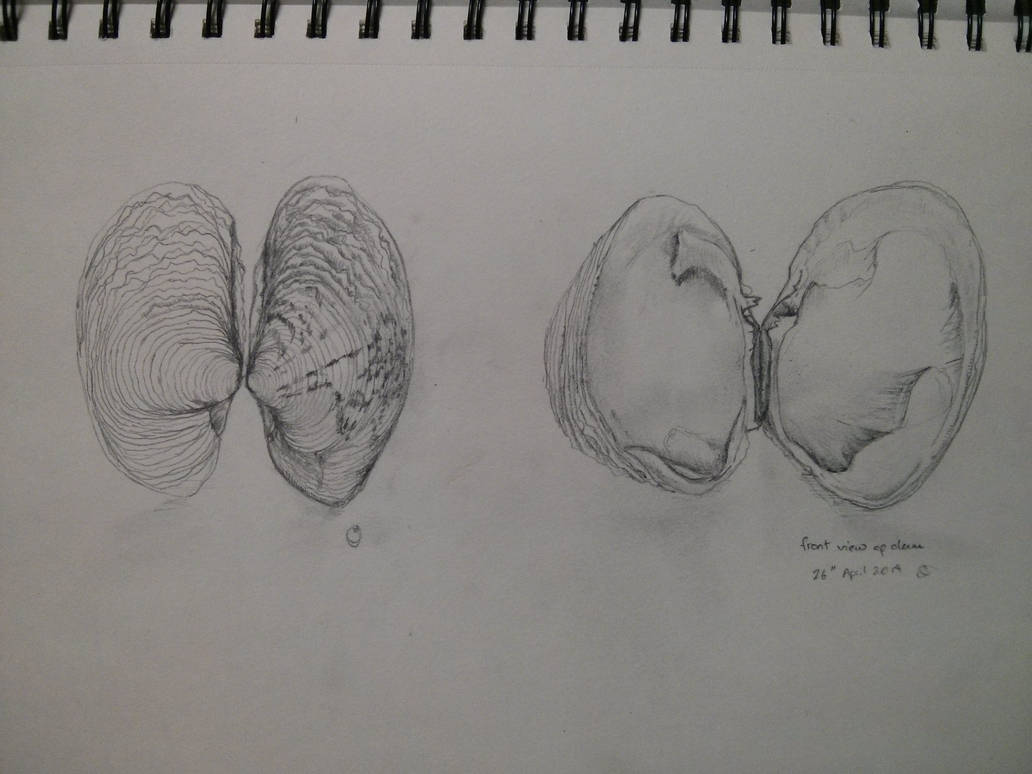 front view of clam
26" April 2014